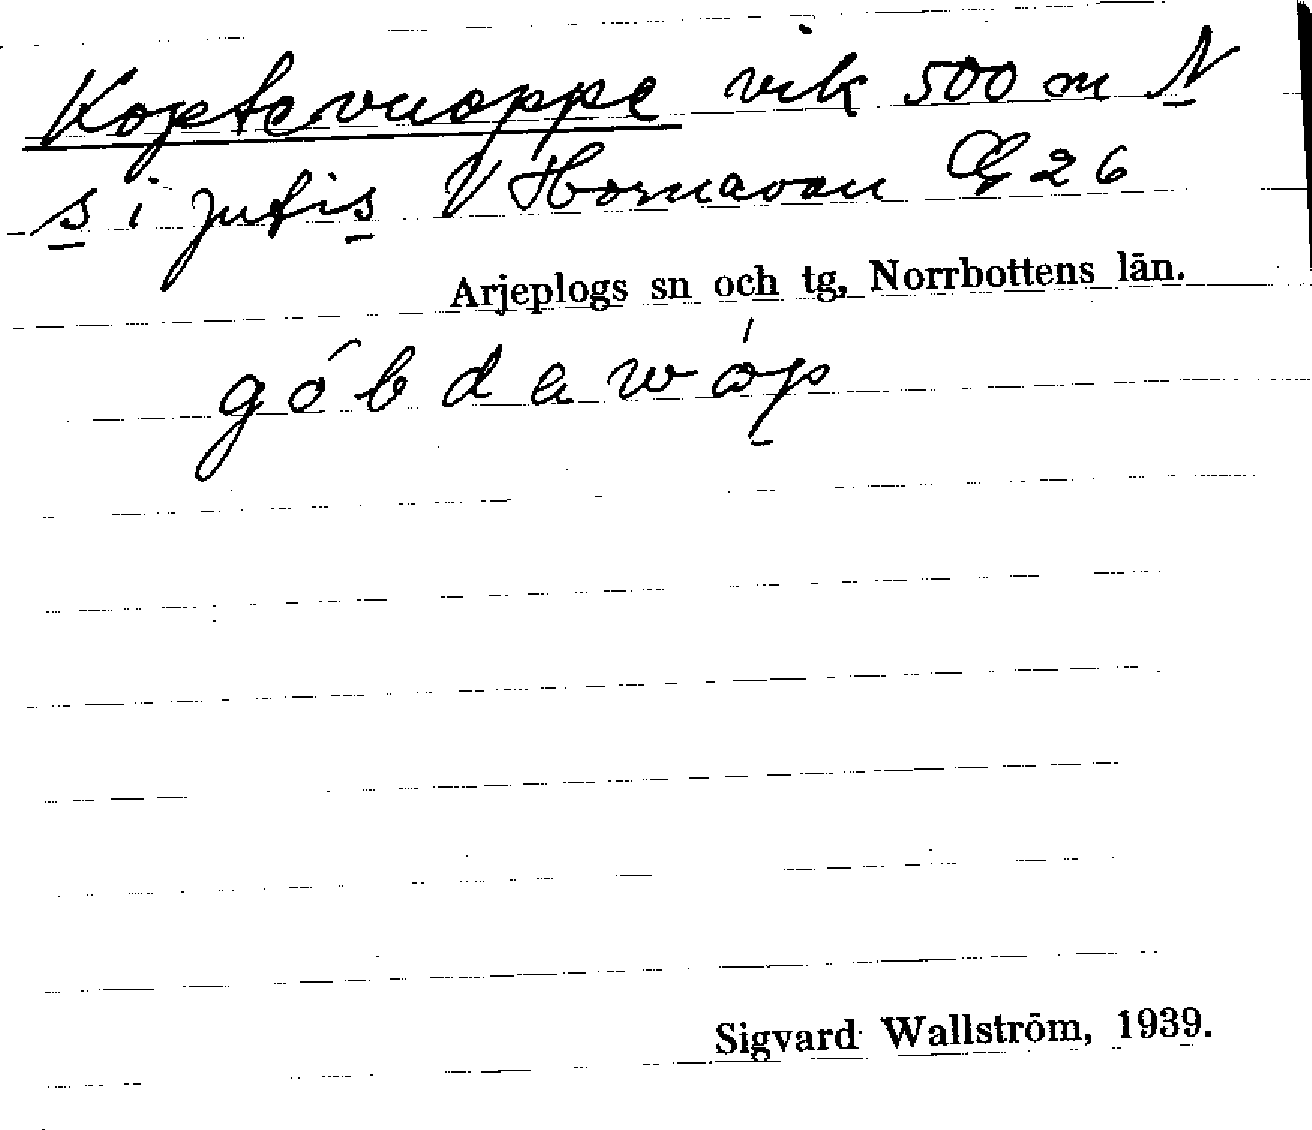 Koptevuoppe vik 500 m N
s i jutis V Hornavan Cg 26
Arjeplogs sn och tg, Norrbottens län.
góbdawáp
Sigvard Wallström, 1939.